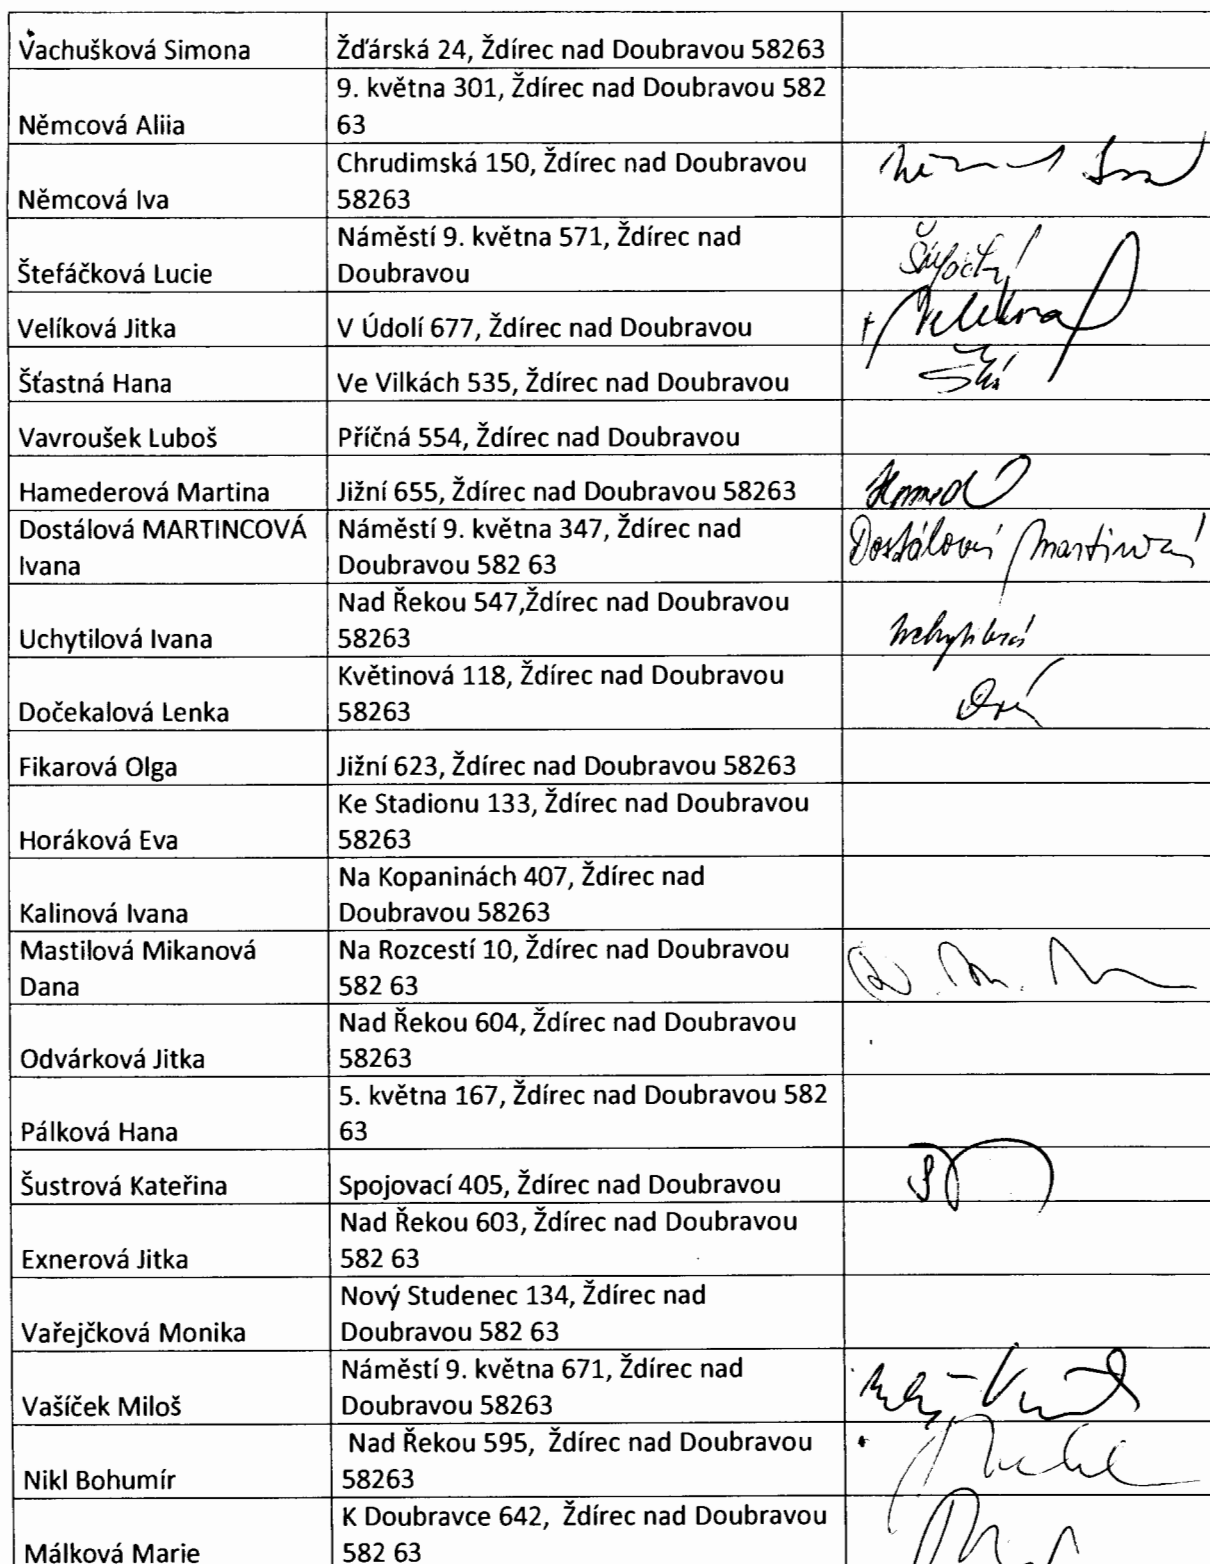 Vachušková Simona
Žďárská 24, Ždírec nad Doubravou 58263
Němcová Aliia
9. května 301, Ždírec nad Doubravou 582
63
Němcová Iva
Chrudimská 150, Ždírec nad Doubravou
58263
Štefáčková Lucie
Náměstí 9. května 571, Ždírec nad
Doubravou
Velíková Jitka
V Údolí 677, Ždírec nad Doubravou
Velíková
Šťastná Hana
Ve Vilkách 535, Ždírec nad Doubravou
Vavroušek Luboš
Příčná 554, Ždírec nad Doubravou
Hamederová Martina
Jižní 655, Ždírec nad Doubravou 58263
Dostálová MARTINCOVÁ
Ivana
Náměstí 9. května 347, Ždírec nad
Doubravou 582 63
Dostálová Martincová
Uchytilová Ivana
Nad Řekou 547,Ždírec nad Doubravou
58263
Uchytilová
Dočekalová Lenka
Květinová 118, Ždírec nad Doubravou
58263
Fikarová Olga
Jižní 623, Ždírec nad Doubravou 58263
Horáková Eva
Ke Stadionu 133, Ždírec nad Doubravou
58263
Kalinová Ivana
Na Kopaninách 407, Ždírec nad
Doubravou 58263
Mastilová Mikanová
Dana
Na Rozcestí 10, Ždírec nad Doubravou
582 63
Odvárková Jitka
Nad Řekou 604, Ždírec nad Doubravou
58263
Pálková Hana
5. května 167, Ždírec nad Doubravou 582
63
Šustrová Kateřina
Spojovací 405, Ždírec nad Doubravou
Exnerová Jitka
Nad Řekou 603, Ždírec nad Doubravou
582 63
Vařejčková Monika
Nový Studenec 134, Ždírec nad
Doubravou 582 63
Vašíček Miloš
Náměstí 9. května 671, Ždírec nad
Doubravou 58263
Nikl Bohumír
Nad Řekou 595, Ždírec nad Doubravou
58263
Málková Marie
K Doubravce 642, Ždírec nad Doubravou
582 63